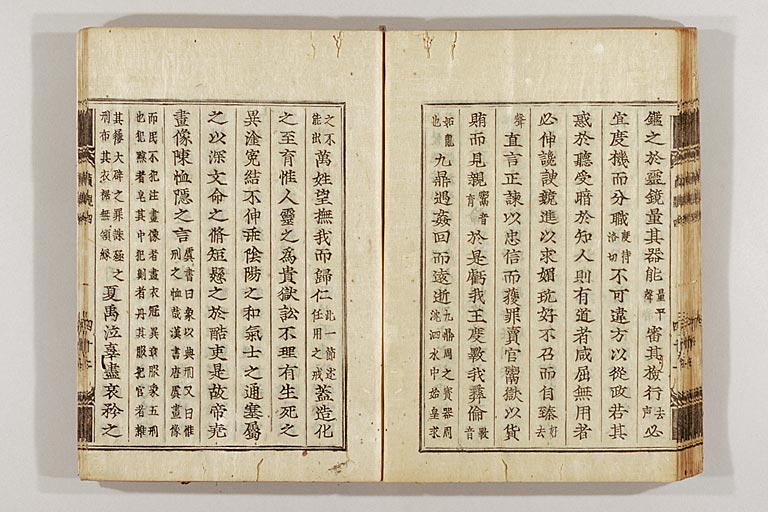 鑑之於靈鏡量其器能量平聲審其檢行去声必
宜度機而分職度待洛切不可違方以從政若其
惑於聽受暗於知人則有道者咸屈無用者
必伸讒諛競進以求媚玩好不召而自臻好去
聲直言正諫以忠信而獲罪賣官鬻獄以貨
賄而見親鬻音育於是虧我王度斁我彝倫斁音
妬亂也九鼎遇姦回而遠逝九鼎周之寶器周沈泗水中始皇求
之不能出萬姓望撫我而歸仁此一節述任用之戒蓋造化
之至育惟人靈之爲貴獄訟不理有生死之
異塗寃結不伸乖陰陽之和氣士之通塞屬
之以深文命之脩短懸之於酷吏是故帝堯
畫像陳恤隱之言虞書曰象以典刑又曰惟刑之恤哉漢書唐虞畫像
而民不犯注畫像者畫衣冠異章服象五刑也犯黥者皂其巾犯劓者丹其服犯宮者雜
其屨大辟之罪誅極之刑布其衣裾無領緣夏禹泣辜盡哀矜之